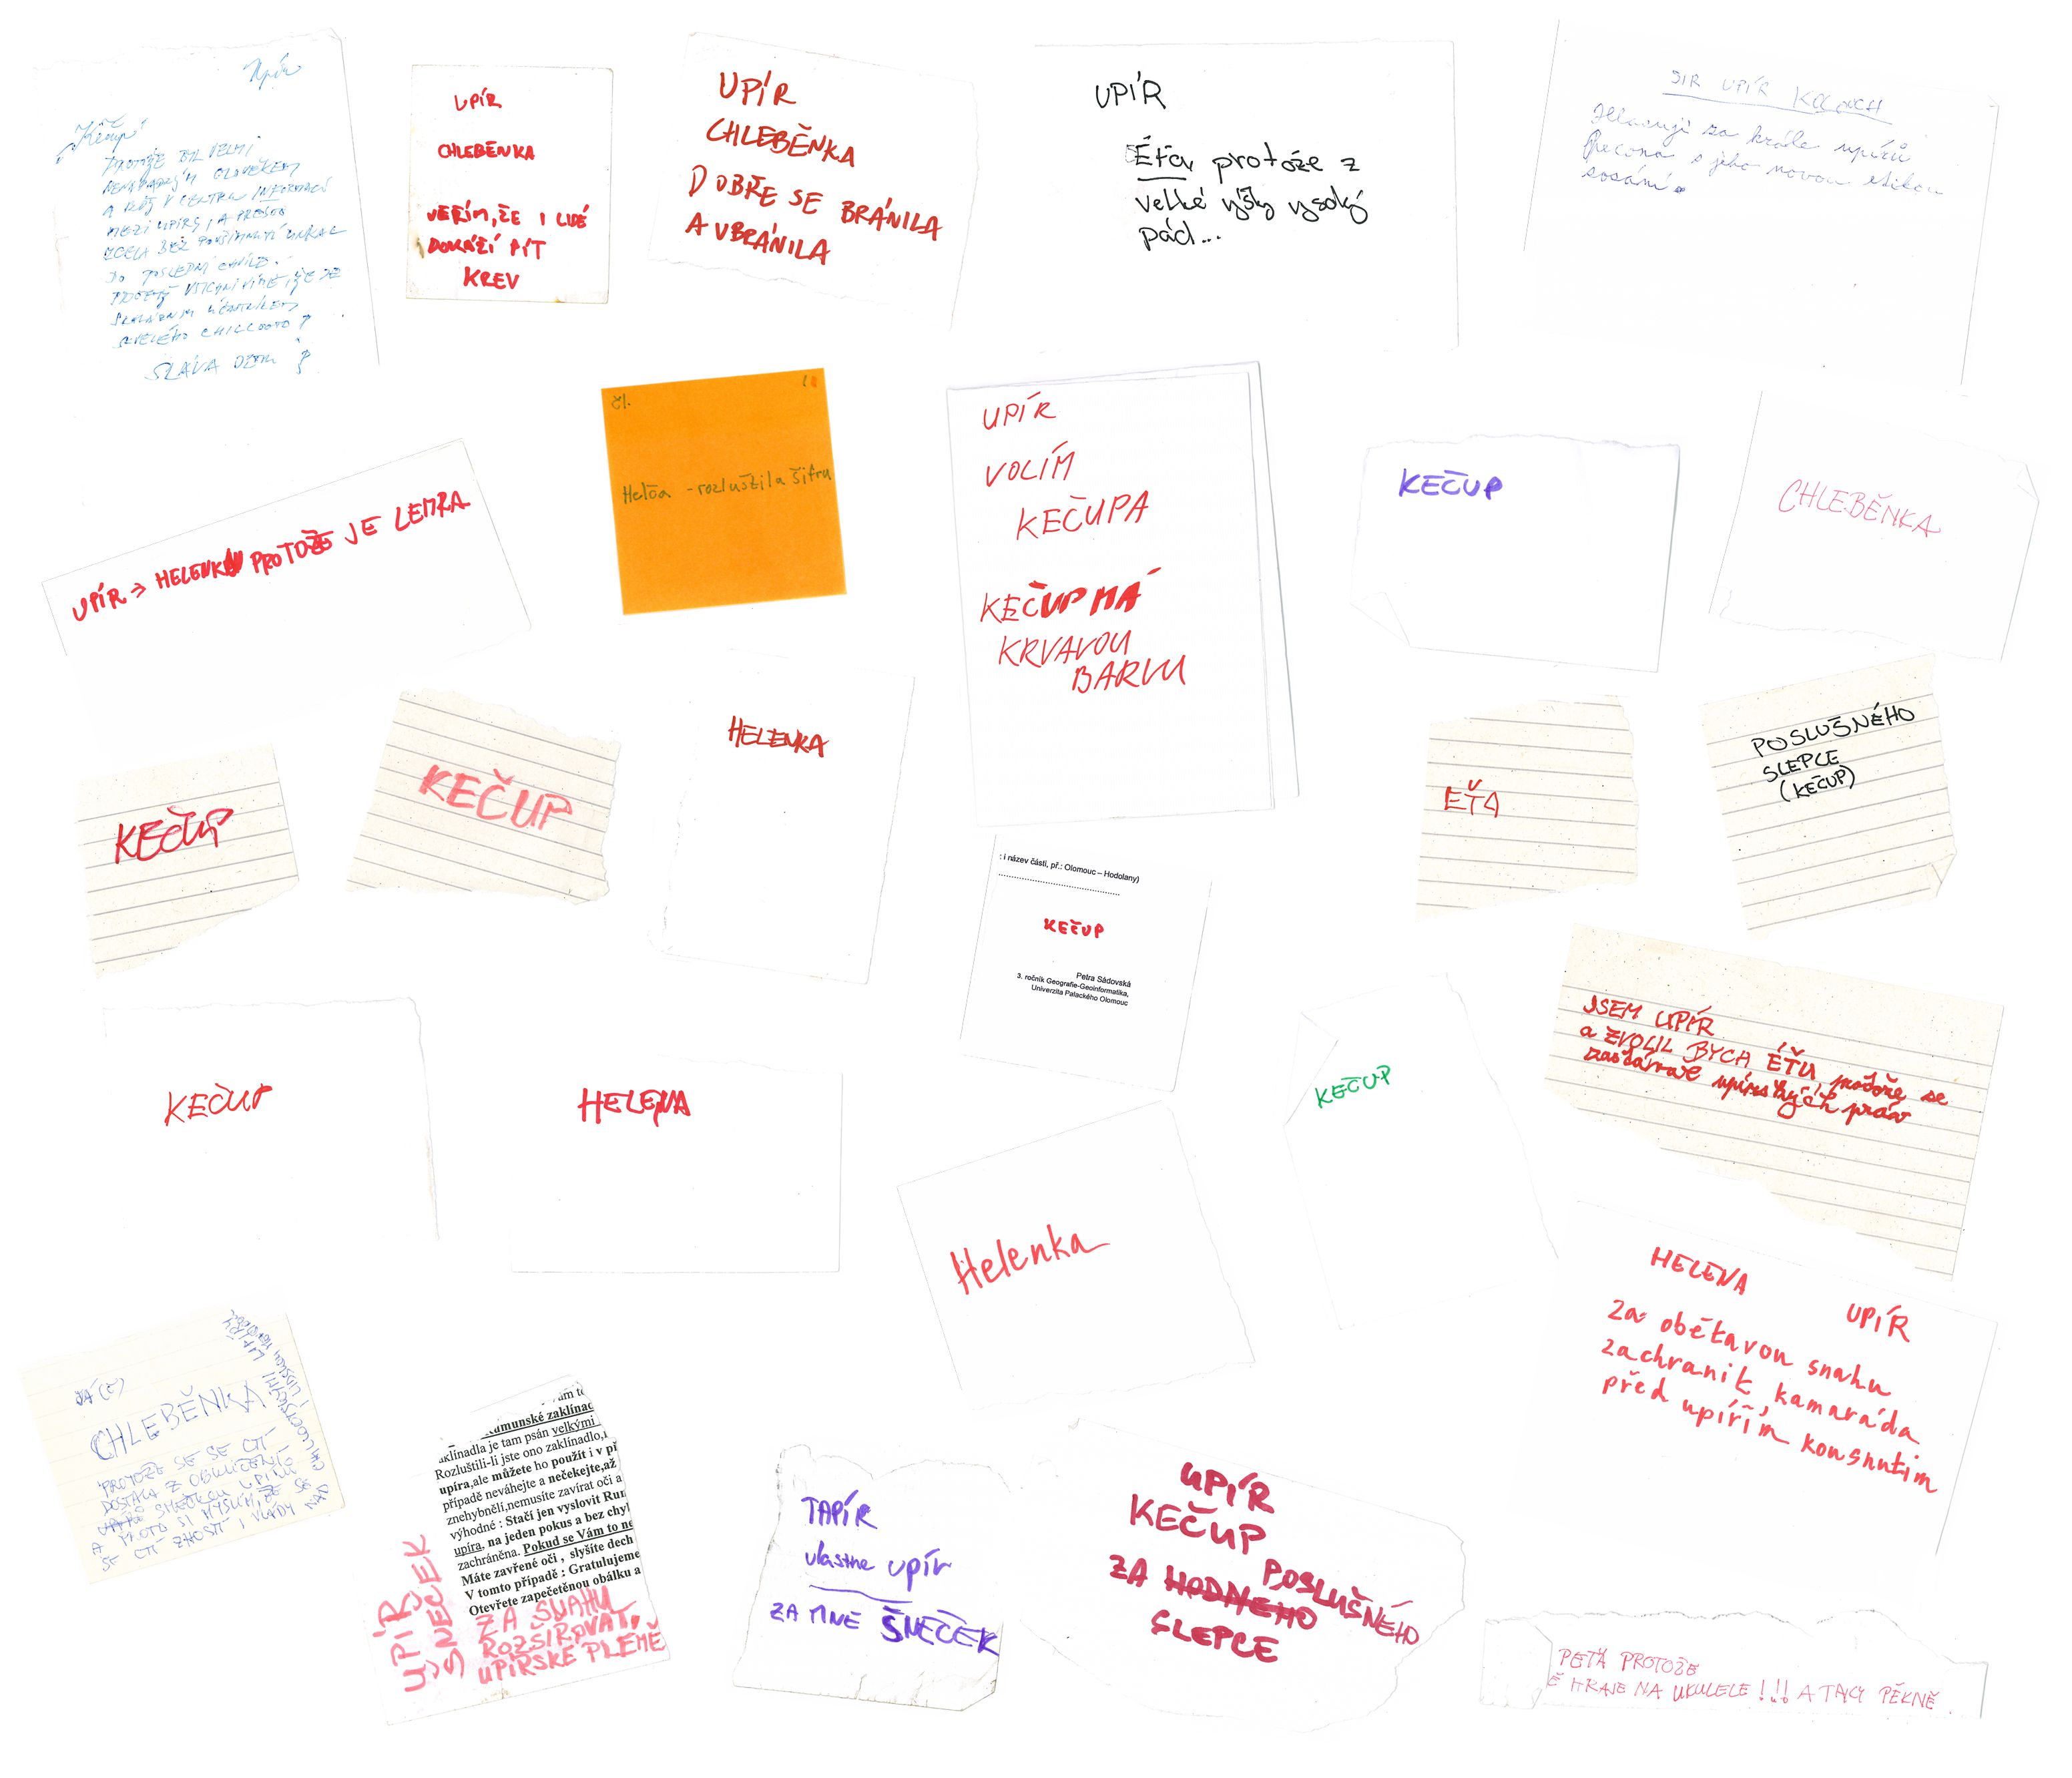 Upír
Kečup
PROTOŽE BYL VELMI
NENÁPADNÝM ČLOVĚKEM
A KDYŽ V CENTRU INFORMACÍ
MEZI UPÍRY, A PŘESTO
ZCELA BEZ POVŠIMNUTÍ UNIKAL
DO POSLEDNÍ CHVÍLE.
VŠICHNI VÍME, ŽE JE
ÚČASTNÍKEM
CHILLOUTO
SLÁVA
UPÍR
CHLEBĚNKA
VĚŘÍM, ŽE I LIDÉ
DOKÁŽÍ PÍT
KREV
UPÍR
CHLEBĚNKA
DOBŘE SE BRÁNILA
A UBRÁNILA
UPÍR
Éťa protože z
velké výšky vysoký
pád...
SIR UPÍR KOLOUCH
Hlasuji za krále upírů
s jeho novou etikou
sosání.
UPÍR → HELENKA PROTOŽE JE LEMRA
čl.
Helča - rozluštila šifru
UPÍR
VOLÍM
KEČUPA
KEČUP MÁ
KRVAVOU
BARVU
KEČUP
CHLEBĚNKA
KEČUP
KEČUP
HELENKA
EŤA
POSLUŠNÉHO
SLEPCE
(KEČUP)
: i název části, př.: Olomouc – Hodolany)
KEČUP
Petra Sádovská
3. ročník Geografie-Geoinformatika,
Univerzita Palackého Olomouc
KEČUP
HELENA
Helenka
KEČUP
JSEM UPÍR
a ZVOLIL BYCH ÉŤU protože se
zastával upírských práv
HELENA
UPÍR
Za obětavou snahu
zachránit kamaráda
před upířím kousnutím
JÁ (Č)
CHLEBĚNKA
PROTOŽE SE SE CTÍ
DOSTALA Z OBKLÍČENÍ
SMEČKOU UPÍRŮ
A PROTO SI MYSLÍM, ŽE SE
SE CTÍ ZHOSTÍ I VLÁDY
NAD CHLUPATSKÝMI I LIDSKÝMI
UPÍRY
UPÍR
ŠNEČEK
ám to
umunské zaklínad
aklínadla je tam psán velkými
Rozluštili-li jste ono zaklínadlo,
upíra,ale můžete ho použít i v př
případě neváhejte a nečekejte,až
znehybnělí,nemusíte zavírat oči a
výhodné : Stačí jen vyslovit Run
upíra, na jeden pokus a bez chyl
zachráněna. Pokud se Vám to ne
Máte zavřené oči , slyšíte dech
V tomto případě : Gratulujeme
Otevřete zapečetěnou obálku a
ZA SNAHU
ROZŠIŘOVAT
UPÍRSKÉ PLEMĚ
TAPÍR
vlastne upír
ZA MNE ŠNEČEK
UPÍR
KEČUP
ZA HODNEHO POSLUŠNÉHO
SLEPCE
PEŤA PROTOŽE
Ě HRAJE NA UKULELE!!! A TAKY PĚKNĚ